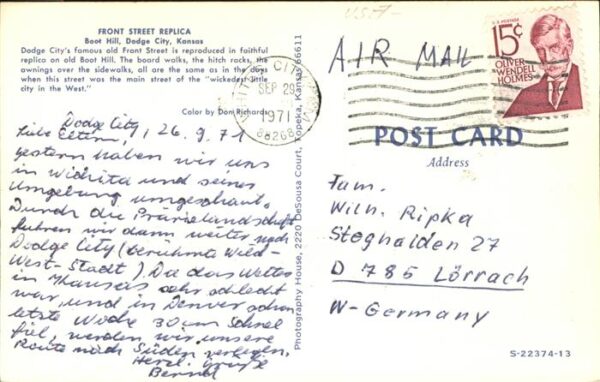 U.S.A-
FRONT STREET REPLICA
Boot Hill, Dodge City, Kansas
Dodge City's famous old Front Street is reproduced in faithful
replica on old Boot Hill. The board walks, the hitch racks, the
awnings over the sidewalks, all are the same as in the days
when this street was the main street of the "wickedest little
city in the West."
Color by Don Richards
Dodge City, 26.9.71
Liebe Eltern,
gestern haben wir uns
in Wichita und seiner
Umgebung umgeschaut.
Durch die Prärielandschaft
fuhren wir dann weiter nach
Dodge City (berühmte Wild-
West-Stadt). Da das Wetter
in Kansas sehr schlecht
war und in Denver schon
letzte Woche 30 cm Schnee
fiel, werden wir unsere
Route nach Süden verlegen.
Herzl. Grüße
Bernd
Photography House, 2220 DeSousa Court, Topeka, Kansas 66611
CITY
SEP 29
1971
88268
AIR MAIL
U.S. POSTAGE
15¢
OLIVER
WENDELL
HOLMES
POST CARD
Address
Fam.
Wilh. Ripka
Steghalden 27
D 785 Lörrach
W-Germany
S-22374-13